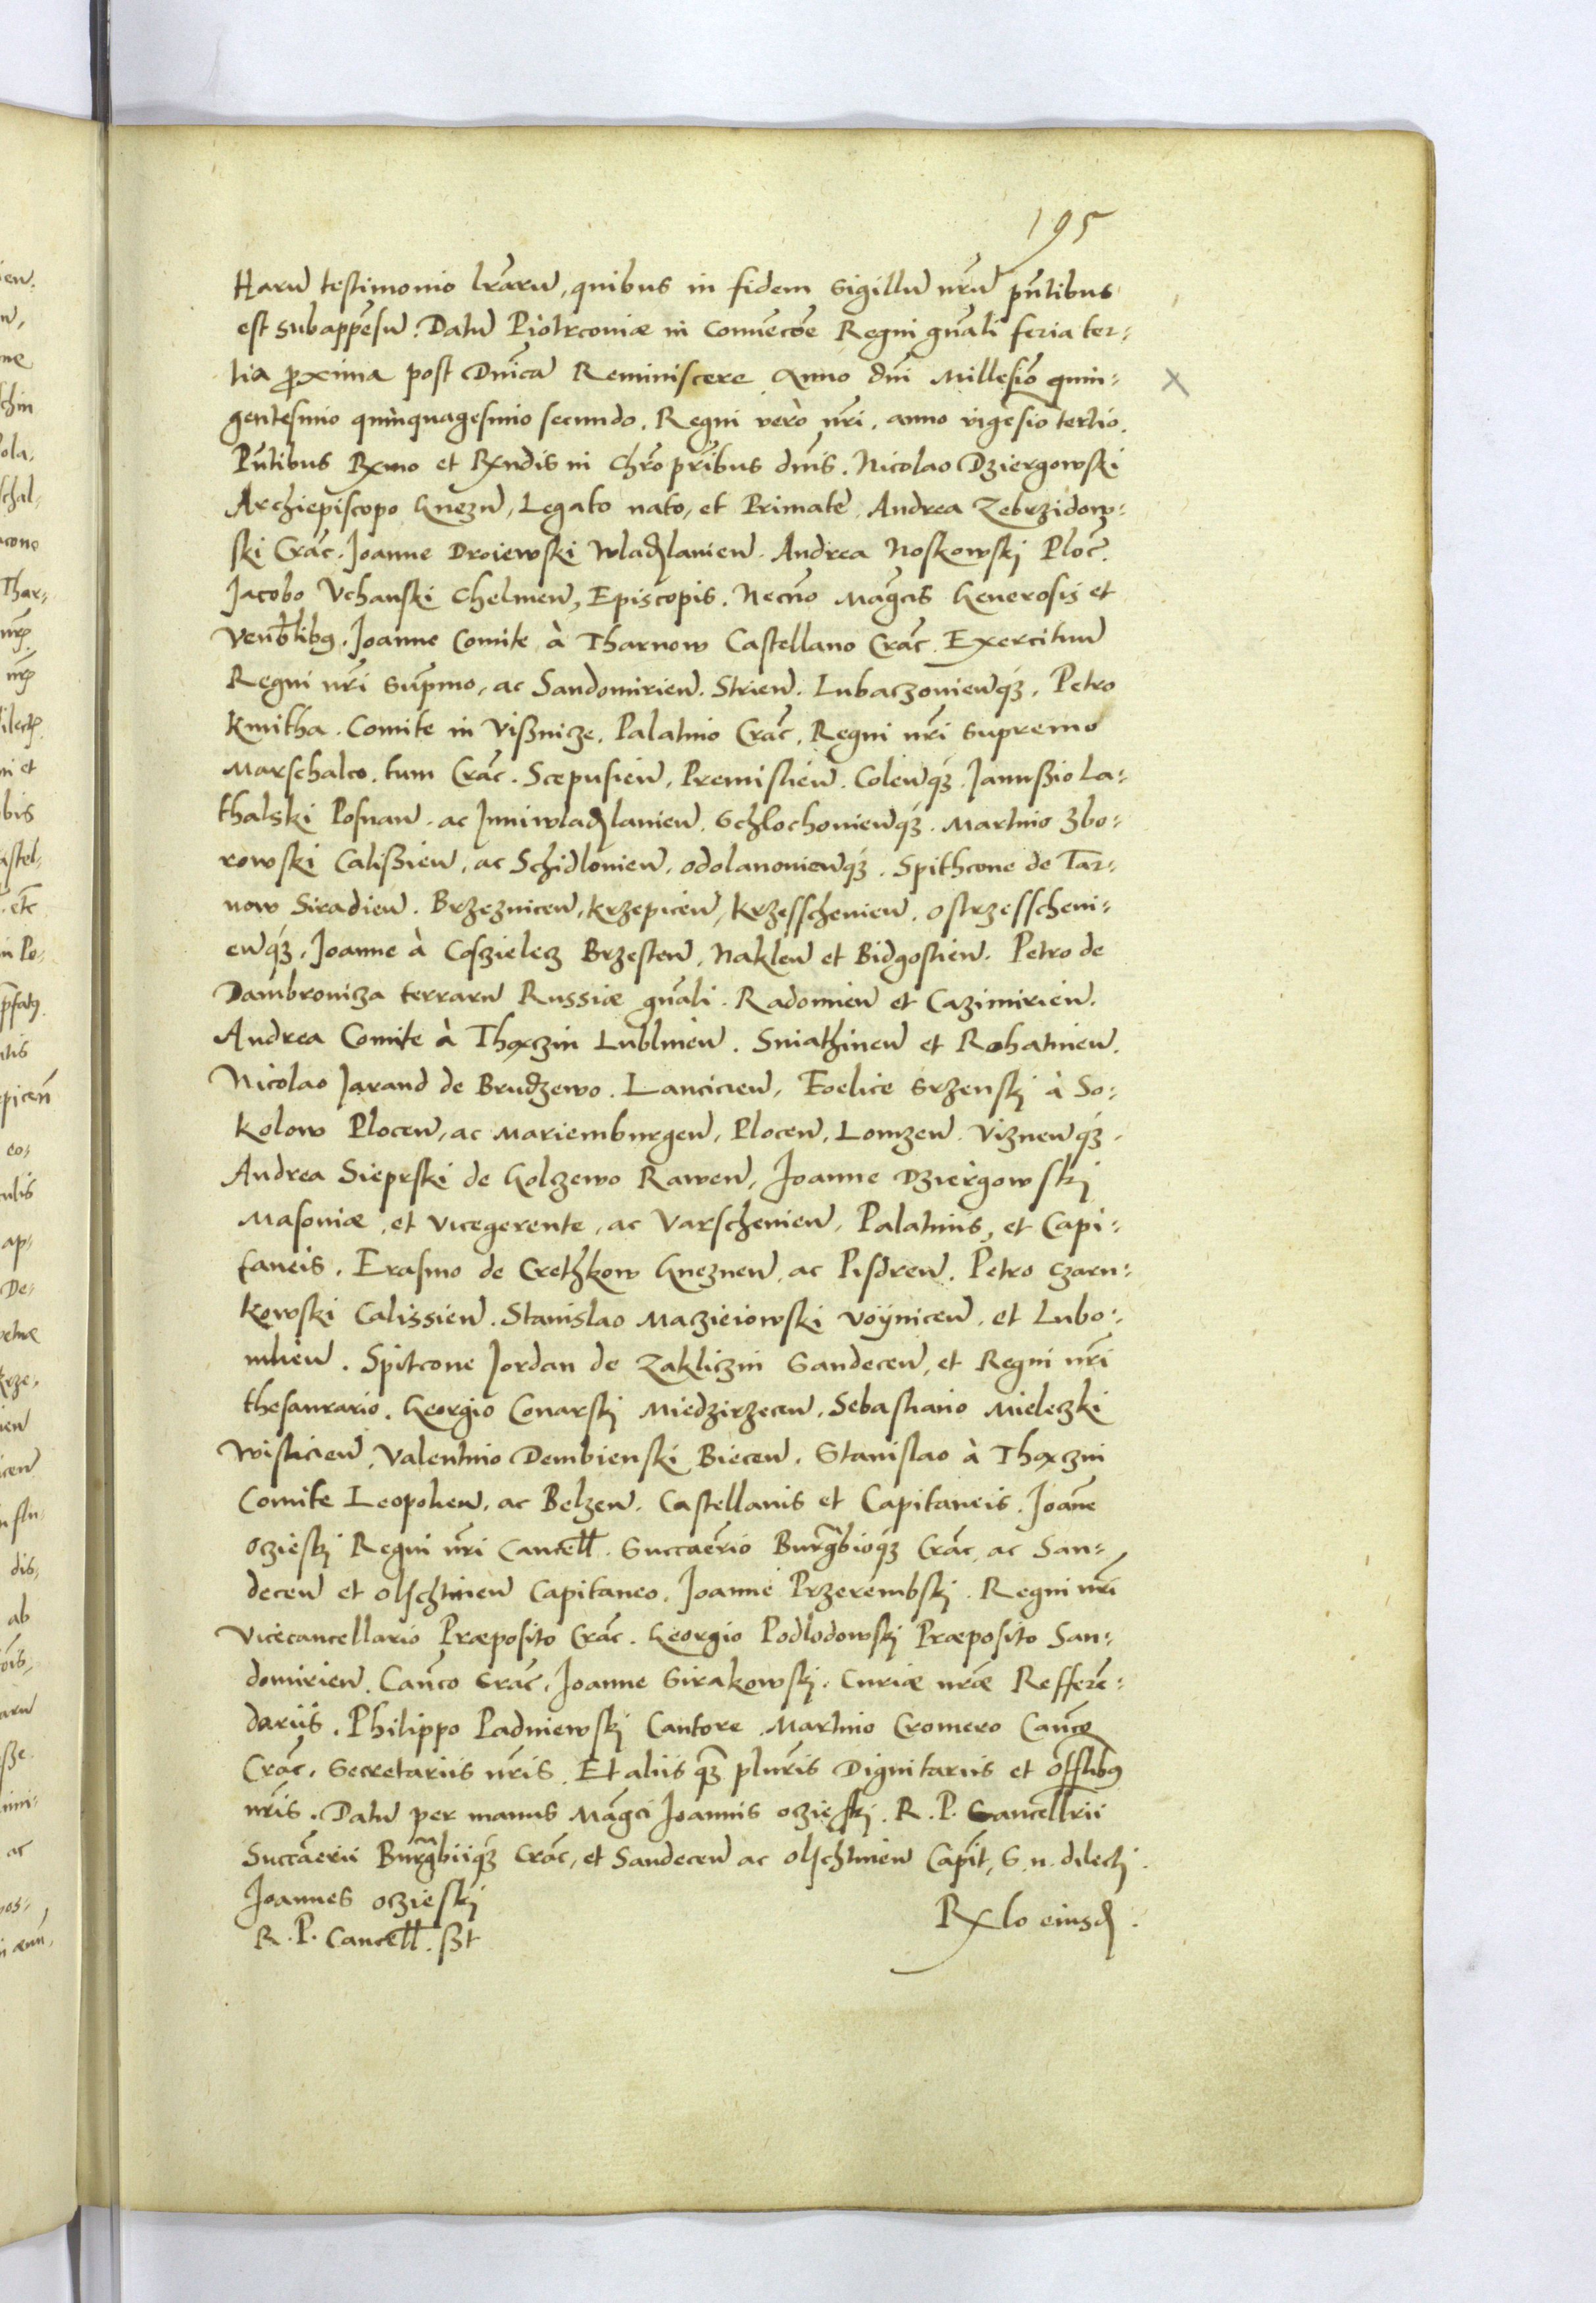 195
Harū testimonio lrārū, quibus in fidem Sigillū nrū pñtibus
est subappēsū. Datū Piotrconiæ in Conuēcōe Regni gnāli feria ter=
tia proxima post Dnīcā Reminiscere Anno dnī Millesīo quin=
gentesimo quinquagesimo secundo. Regni verò nrī. anno vigesīo tertio.
Pñtibus Rxmo et Rxndis in Chrō prībus dnīs. Nicolao Dziergowski
Archiepiscopo Gnezn̄, Legato nato, et Primate, Andrea Zebrzidow=
ski Crāc. Joanne Droiewski Wladislauien̄. Andrea Noskowskj Ploc̄.
Jacobo Vchanski Chelmen̄, Episcopis. Necnō Māgcis Generosis et
Venblībꝰ. Joanne Comite à Tharnow Castellano Crāc. Exercituū
Regni nrī Supmo, ac Sandomirien̄. Strien̄. Lubaczouien̄qꝫ. Petro
Kmitha. Comite in Vißnicze. Palatino Crāc. Regni nrī Supremo
Marschalco. tum Crāc. Scepusien̄, Premislien̄. Colen̄qꝫ. Janußio La=
thalski Posnan̄. ac Juniwladislauien̄. Schlochouien̄qꝫ. Martino Zbo=
rowski Calißien̄, ac Schidlouien̄, odolanouien̄qꝫ. Spithcone de Tar=
now Siradien̄. Brzeznicen̄, Krzepicen̄, Krzesschouien̄. ostrzesschoui=
en̄qꝫ, Joanne à Coszielecz Brzesten̄, Naklen̄ et Bidgostien̄. Petro de
Dambrouicza terrarū Russiæ gnāli. Radomien̄ et Cazimirien̄.
Andrea Comite à Thęczin Lublinen̄. Sniathinen̄ et Rohatinen̄.
Nicolao Jarand de Brudzewo. Lancicien̄, Foelice Srzenskj à So=
kolow Plocen̄, ac Mariemburgen̄, Plocen̄, Lomzen̄. Viznen̄qꝫ.
Andrea Sieprski de Golczewo Rawen̄, Joanne Dziergowskj
Masouiæ, et vicegerente, ac Varschouien̄, Palatinis, et Capi=
taneis. Erasmo de Crethkow Gneznen̄, ac Pisdren̄. Petro Czarn=
kowski Calissien̄. Stanislao Maczieiowski Voynicen̄, et Lubo=
mlien̄. Spitcone Jordan de Zakliczin Sandecen̄, et Regni nrī
thesaurario. Georgio Conarskj Miedzirzecen̄. Sebastiano Mieleczki
Wislicien̄, Valentino Dembienski Biecen̄. Stanislao à Thęczin
Comite Leopolien̄, ac Belzen̄. Castellanis et Capitaneis. Joāne
Oczieskj Regni nrī Cancell. Succaērio Burgrabioqꝫ Crāc, ac San=
decen̄ et olschtinen̄ Capitaneo. Joanne Przerembskj. Regni nrī
Vicecancellario Præposito Crāc. Georgio Podlodowskj Præposito San=
domirien̄. Canco Crāc, Joanne Sirakowskj. Curiæ nræ Refferē=
dariis. Philippo Padniewskj Cantore. Martino Cromero Canco
Crāc, Secretariis nrīs. Et aliis qꝫ plurīs Dignitariis et offlībꝰ
nrīs. Datū per manus Māgci Joannis ozieskj. R. P. Cancellrii
Succāerii Burgrabiiqꝫ Crāc, et Sandecen̄ ac olschtinen̄ Capit, S. n. dilecti.
Joannes oczieskj
R. P. Cancell. ßt
Rxlo eiusd.